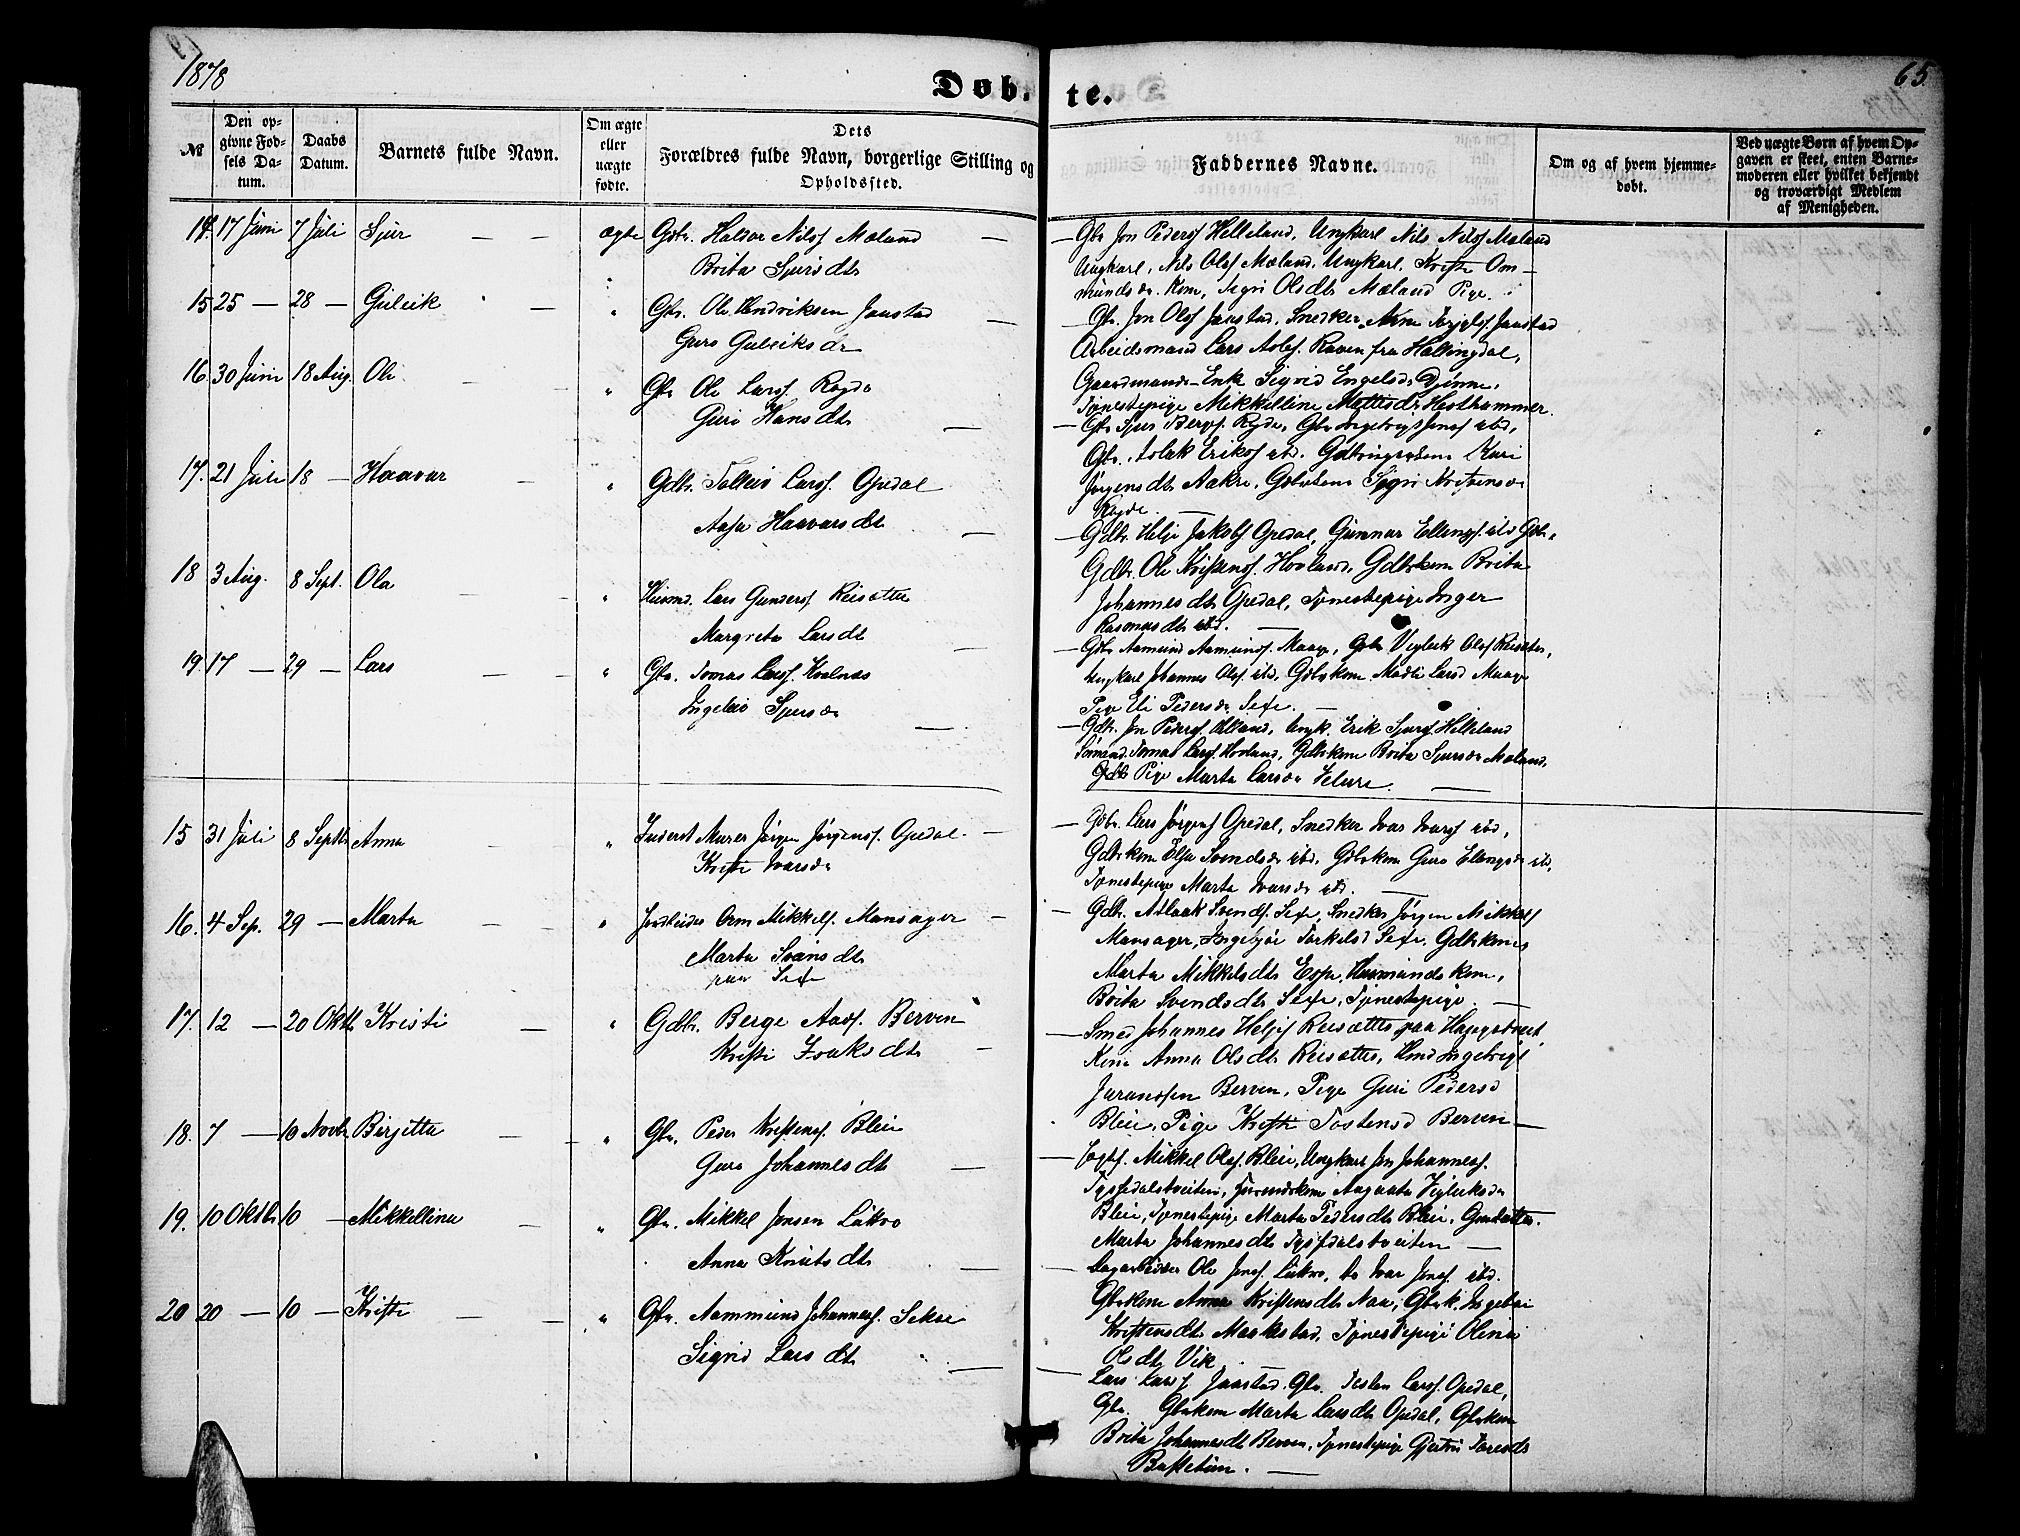 1878
Døb- te.
65.
№
Den opgivne Fødsels Datum.
Daabs Datum.
Barnets fulde Navn.
Om ægte eller uægte fødte.
Dets Forældres fulde Navn, borgerlige Stilling og Opholdssted.
Faddernes Navne.
Om og af hvem hjemmedøbt.
Ved uægte Børn af hvem Opgaven er skeet, enten Barnemoderen eller hvilket bekjendt og troværdigt Medlem af Menigheden.
14. 17 Juni 7 Juli Sjur — — ægte Gdbr. Haldor Nilss Mæland —
Brita Sjursdtr
— Gbr Jon Pederss Helleland, Ungkarl Nils Nilss Mæland
Ungkarl, Nils Olss Mæland, Ungkarl, Kristi Om-
mundsdr. Kone, Sigri Olsdtr Mæland Pige.
15 25 — 28 — Guleik — " Gbr. Ole Hendriksen Jaastad —
Guro Guleiksdr
— Gbr. Jon Olss Jaastad, Snedker Arne Torjelss Jaastad
Arbeidsmand Lars Asles. Raven fra Hallingdal,
Gaardmands-Enke Sigrid Engelsdr Djønne,
Tjenestepige Mikkeline Mattisdr Hesthammer.
16. 30 Juni 18 Aug. Ole — — " Gbr Ole Larss Rogde
Guri Hansdtr —
— Gbr Sjur Bergs. Rogde, Gbr Ingebrigt Jonss ibd,
Gbr. Aslak Erikss ibd. Kari
Jørgensdtr Aakre, Sigri
Rogde. —
17. 21 Juli 18 — Haavar — " Gdbr. Tolleiv Larss. Opedal
Aasa Haavarsdtr —
— Gdbr. Helje Jakobs Opedal, Gunnar Ellengs. ibd Gbr.
Gdbr. Ole Kristens. Hovland, Gdbrkone Brita
Johannesdtr Opedal, Tjenestepige Inger
Rasmusdtr ibd. —
18 3 Aug. 8 Sept. Ola — — " Husmd. Lars Gunders. Reisæter
Margreta Larsdtr —
— Gdbr Aamund Aamunds. Maage, Gbr Vigleik Olss Reisæter,
Ungkarl Johannes Olss ibd, Gdbrkone Madli Larsd Maage
Pige Eli Pedersdr Sexe. —
19. 17 — 29 — Lars — — " Gbr. Tomas Larss. Kvalnes
Ingeleiv Sjursdr —
— Gdbr. Jon Pederss Helleland, Ungk. Erik Sjurs. Helleland
Tomas Larss. Hovland, Gdbrkone Brita Sjursdr Mæland,
Pige Marta Larsdr Velure. —
15 31 Juli 8 Septbr Anna " Inderst Murer Jørgen Jørgenss. Opedal —
Kristi Ivarsdr
— Gdbr. Lars Jørgenss Opedal, Snedker Ivar Ivarss ibd,
Gdbrkone Elsa Svendsdr ibd, Gdbrkone Guro Elengsdr ibd,
Tjenestepige Marta Ivarsdr ibd. —
16. 4 Sep. 29 — Marta — — " Orm Mikkels. Mansager —
Marta Svendsdtr
paa Sexe
— Gdbr. Aslaak Svends. Sexe, Snedker Jørgen Mikkelss
Mansager, Ingebjør Torkelsd Sexe, Gdbrkone
Marta Mikkelsdtr Espe, Husmandskone,
Brita Svendsdtr Sexe, Tjenestepige. —
17. 12 — 20 Oktbr Kristi — " Gdbr. Berge Aads. Berven
Kristi Isaksdtr —
— Smed Johannes Heljes Reisæter paa
Kone Anna Olsdtr Reisæter, Ingebrigt
Berven, Pige Guri Pedersd
Bleie, Pige Kristi Tostensd Berven —
18. 7 — 10 Novbr Birgitta — — " Gbr. Peder Kristens. Bleie
Guro Johannesdtr —
— Mikkel Olss. Bleie, Ungkarl Jon Johanness.
Tyssedalstveiten, Augusta Vigleiksdr
Bleie, Tjenestepige Marta Pedersdtr Bleie,
Marta Johannesdtr Tyssedalstveiten —
19. 10 Oktbr 10 — Mikkellina — " Gbr. Mikkel Jonsen Lutro
Anna Knutsdtr —
— Ole Jons. Lutro, do Ivar Jons. ibd.
Gbrkone Anna Kristensdtr Naa, Gbrk. Ingebor
Kristensdtr Maakestad, Tjenestepige Olina
Olsdtr Vik. —
20 20 — 10 — Kristi — — " Gbr. Aammund Johanness. Sekse
Sigrid Larsdtr —
— Lars Larss Jaastad, Gbr. Larss. Opedal,
Gbr. Gbrkone Marta Larsdtr Opedal, Gbrkone
Brita Johannesdtr Berven, Tjenestepige